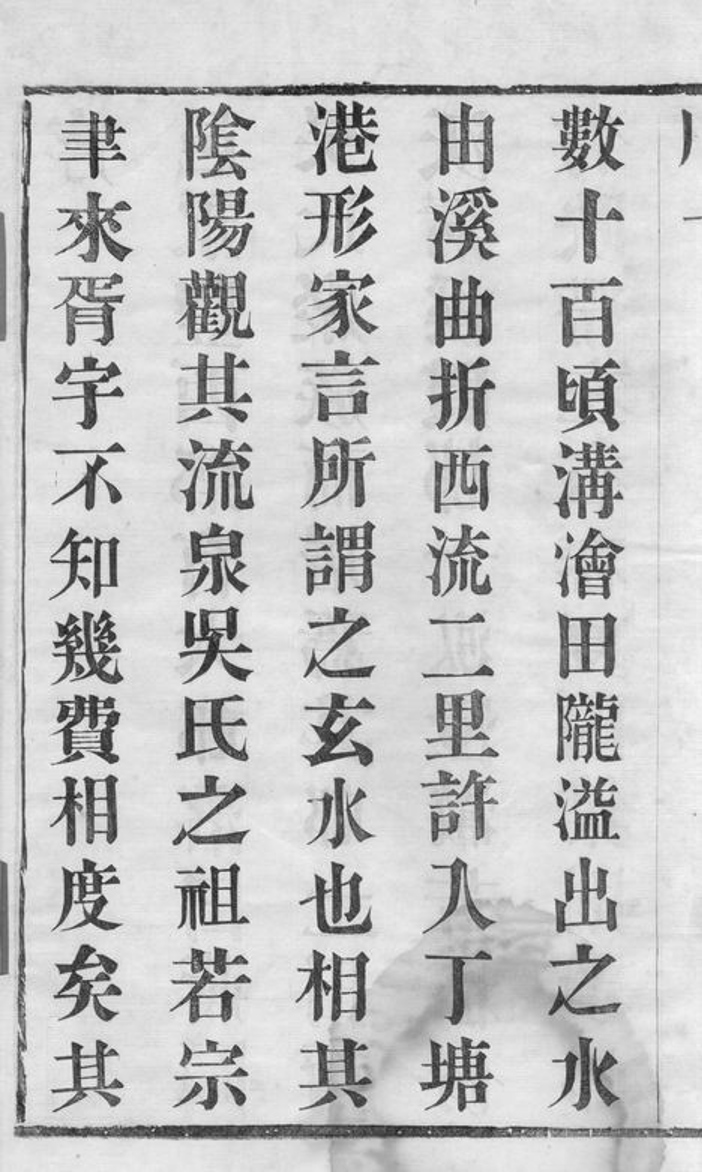 數十百頃溝澮田隴溢出之水
由溪曲折西流二里許入丁塘
港形家言所謂之玄水也相其
陰陽觀其流泉吳氏之祖若宗
聿來胥宇不知幾費相度矣其